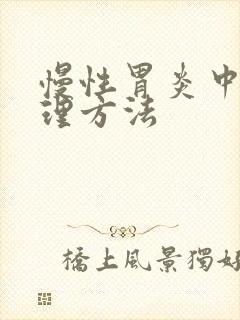 慢性胃炎中
理方法
橋上風景獨好